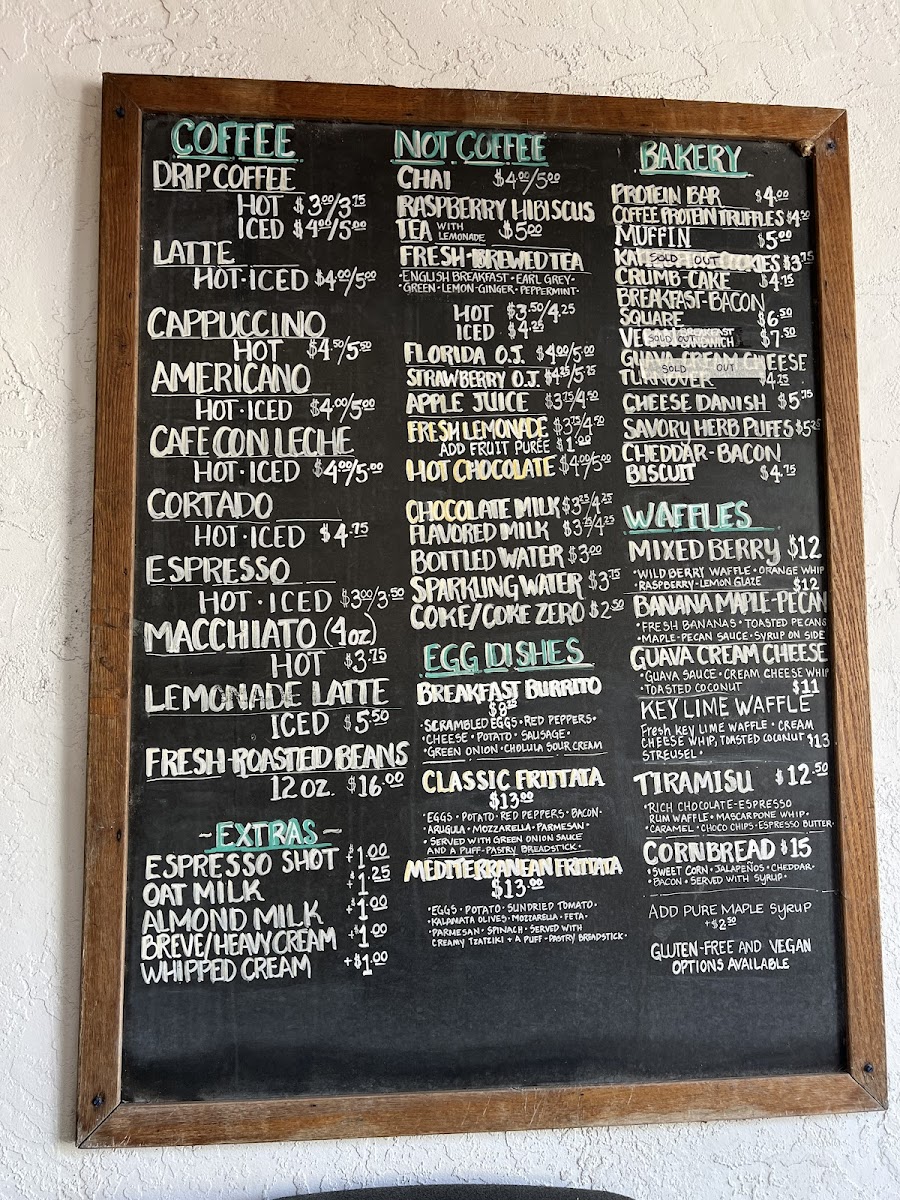 COFFEE
DRIP COFFEE
HOT $3.00/3.75
ICED $4.00/5.00
LATTE
HOT · ICED $4.00/5.00
CAPPUCCINO
HOT $4.50/5.50
AMERICANO
HOT · ICED $4.00/5.00
CAFE CON LECHE
HOT · ICED $4.00/5.00
CORTADO
HOT · ICED $4.75
ESPRESSO
HOT · ICED $3.00/3.50
MACCHIATO (4oz)
HOT $3.75
LEMONADE LATTE
ICED $5.50
FRESH-ROASTED BEANS
12 OZ. $16.00
~EXTRAS~
ESPRESSO SHOT $1.00
OAT MILK +1.25
ALMOND MILK +$1.00
BREVE/HEAVY CREAM +$1.00
WHIPPED CREAM +$1.00
NOT COFFEE
CHAI $4.00/5.00
RASPBERRY HIBISCUS
TEA WITH LEMONADE $5.00
FRESH-BREWED TEA
·ENGLISH BREAKFAST·EARL GREY·
·GREEN·LEMON·GINGER·PEPPERMINT·
HOT $3.50/4.25
ICED $4.25
FLORIDA O.J. $4.00/5.00
STRAWBERRY O.J. $4.25/5.25
APPLE JUICE $3.75/4.50
FRESH LEMONADE $3.75/4.50
ADD FRUIT PUREE $1.00
HOT CHOCOLATE $4.00/5.00
CHOCOLATE MILK $3.25/4.25
FLAVORED MILK $3.25/4.25
BOTTLED WATER $3.00
SPARKLING WATER $3.75
COKE/COKE ZERO $2.50
EGG DISHES
BREAKFAST BURRITO
·SCRAMBLED EGGS·RED PEPPERS·
·CHEESE·POTATO·SAUSAGE·
·GREEN ONION·CHOLULA SOUR CREAM
CLASSIC FRITTATA
$13.00
·EGGS·POTATO·RED PEPPERS·BACON·
ARUGULA·MOZZARELLA·PARMESAN·
·SERVED WITH GREEN ONION SAUCE
AND A PUFF-PASTRY BREADSTICK·
MEDITERRANEAN FRITTATA
$13.00
·EGGS·POTATO·SUNDRIED TOMATO·
·KALAMATA OLIVES·MOZZARELLA·FETA·
·PARMESAN·SPINACH·SERVED WITH
CREAMY TZATZIKI + A PUFF-PASTRY BREADSTICK·
BAKERY
PROTEIN BAR $4.00
COFFEE PROTEIN TRUFFLES $4.50
MUFFIN $5.00
SOLD OUT COOKIES $3.75
CRUMB-CAKE $4.75
BREAKFAST-BACON
SQUARE $6.50
SOLD OUT BREAKFAST SANDWICH $7.50
GUAVA CREAM CHEESE
SOLD OUT
TURNOVER $4.75
CHEESE DANISH $5.75
SAVORY HERB PUFFS $5.25
CHEDDAR-BACON
BISCUIT $4.75
WAFFLES
MIXED BERRY $12
·WILD BERRY WAFFLE·ORANGE WHIP
·RASPBERRY-LEMON GLAZE $12
BANANA MAPLE-PECAN
·FRESH BANANAS·TOASTED PECANS
·MAPLE-PECAN SAUCE·SYRUP ON SIDE
GUAVA CREAM CHEESE
·GUAVA SAUCE·CREAM CHEESE WHIP
·TOASTED COCONUT $11
KEY LIME WAFFLE
Fresh KEY LIME WAFFLE · CREAM
CHEESE WHIP, TOASTED COCONUT $13
STREUSEL·
TIRAMISU $12.50
·RICH CHOCOLATE-ESPRESSO
RUM WAFFLE·MASCARPONE WHIP·
·CARAMEL·CHOCO CHIPS·ESPRESSO BUTTER·
CORNBREAD $15
·SWEET CORN·JALAPEÑOS·CHEDDAR·
·BACON·SERVED WITH SYRUP·
ADD PURE MAPLE SYRUP
+$2.50
GLUTEN-FREE AND VEGAN
OPTIONS AVAILABLE